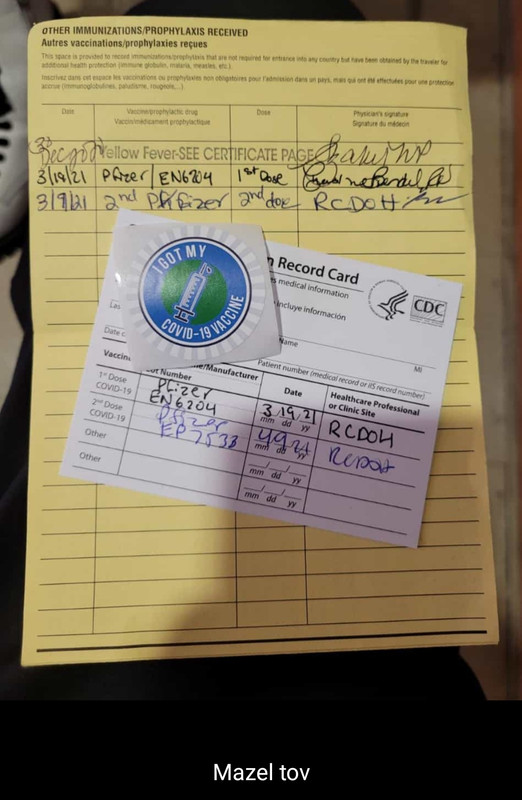 OTHER IMMUNIZATIONS/PROPHYLAXIS RECEIVED
Autres vaccinations/prophylaxies reçues
This space is provided to record immunizations/prophylaxis that are not required for entrance into any country but have been obtained by the traveler for
additional health protection (immune globulin, malaria, measles, etc.).
Inscrivez dans cet espace les vaccinations ou prophylaxies non obligatoires pour l'admission dans un pays, mais qui ont été effectuées pour une protection
accrue (immunoglobulines, paludisme, rougeole,...).
Date Vaccine/prophylactic drug Dose Physician's signature
Vaccin/médicament prophylactique Signature du médecin
Yellow Fever-SEE CERTIFICATE PAGE
3/19/21 Pfizer/EN6204 1st Dose
3/9/21 2nd Pfizer 2nd dose RCDOH
I GOT MY
COVID-19 VACCINE
n Record Card
s medical information
incluye información
CDC
Name MI
Date Patient number (medical record or IIS record number)
Vaccin /Manufacturer Date Healthcare Professional
Number or Clinic Site
1st Dose Pfizer 3.19.21 RCDOH
COVID-19 EN6204 mm dd yy
2nd Dose Pfizer 4 9 21 RCDOH
COVID-19 mm dd yy
Other
mm dd yy
Other
mm dd yy
Mazel tov